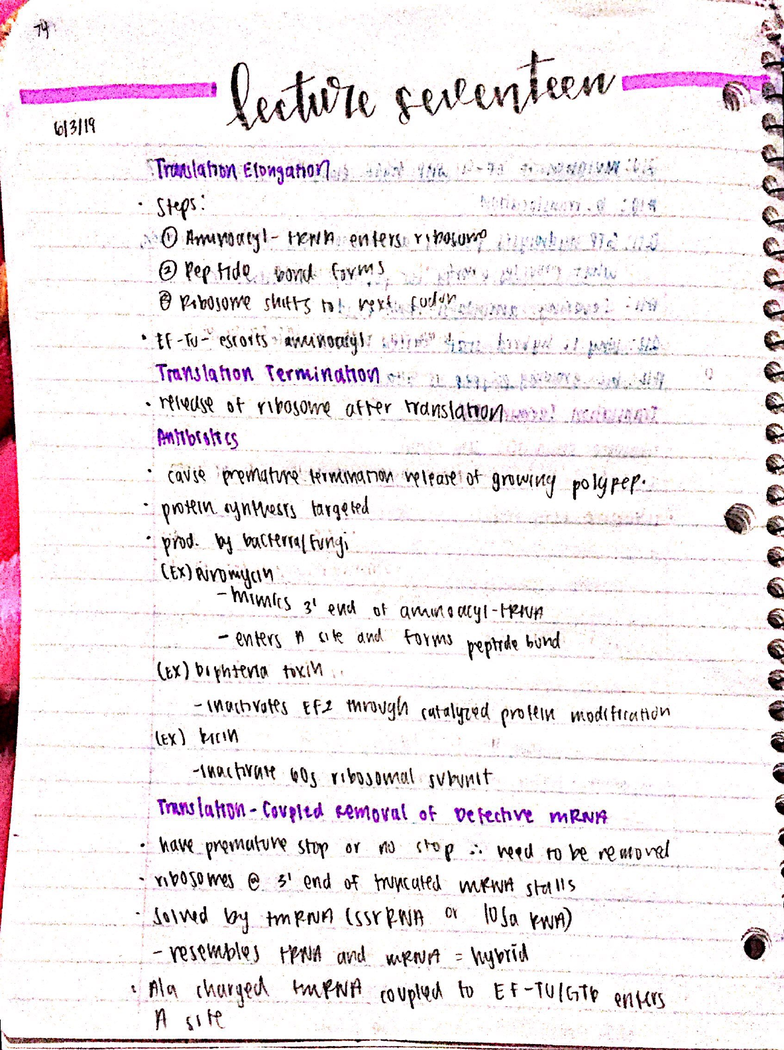 74
lecture seventeen
6/3/19
Translation Elongation
• Steps:
① Aminoacyl-tRNA enters ribosome
② Peptide bond forms
③ Ribosome shifts to next codon
• EF-Tu- escorts aminoacyl
Translation Termination
• release of ribosome after translation
Antibiotics
• cause premature termination release of growing polypep.
• protein synthesis targeted
• prod. by bacteria/fungi
(EX) Puromycin
- mimics 3' end of aminoacyl-tRNA
- enters A site and forms peptide bond
(EX) Diphteria toxin
- inactivates EF2 through catalyzed protein modification
(EX) Ricin
- inactivate 60s ribosomal subunit
Translation-Coupled Removal of Defective mRNA
• have premature stop or no stop ∴ need to be removed
• ribosomes @ 3' end of truncated mRNA stalls
• solved by tmRNA (ssrRNA or 10Sa RNA)
- resembles tRNA and mRNA = hybrid
• Ala charged tmRNA coupled to EF-TU/GTP enters
A site